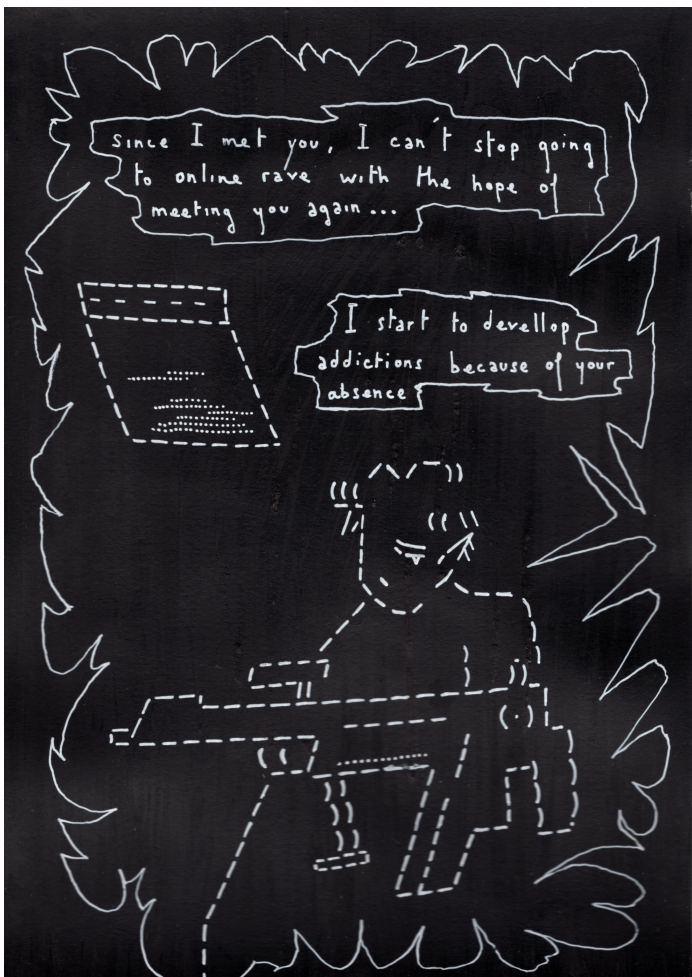 since I met you, I can't stop going
to online rave with the hope of
meeting you again...
I start to devellop
addictions because of your
absence